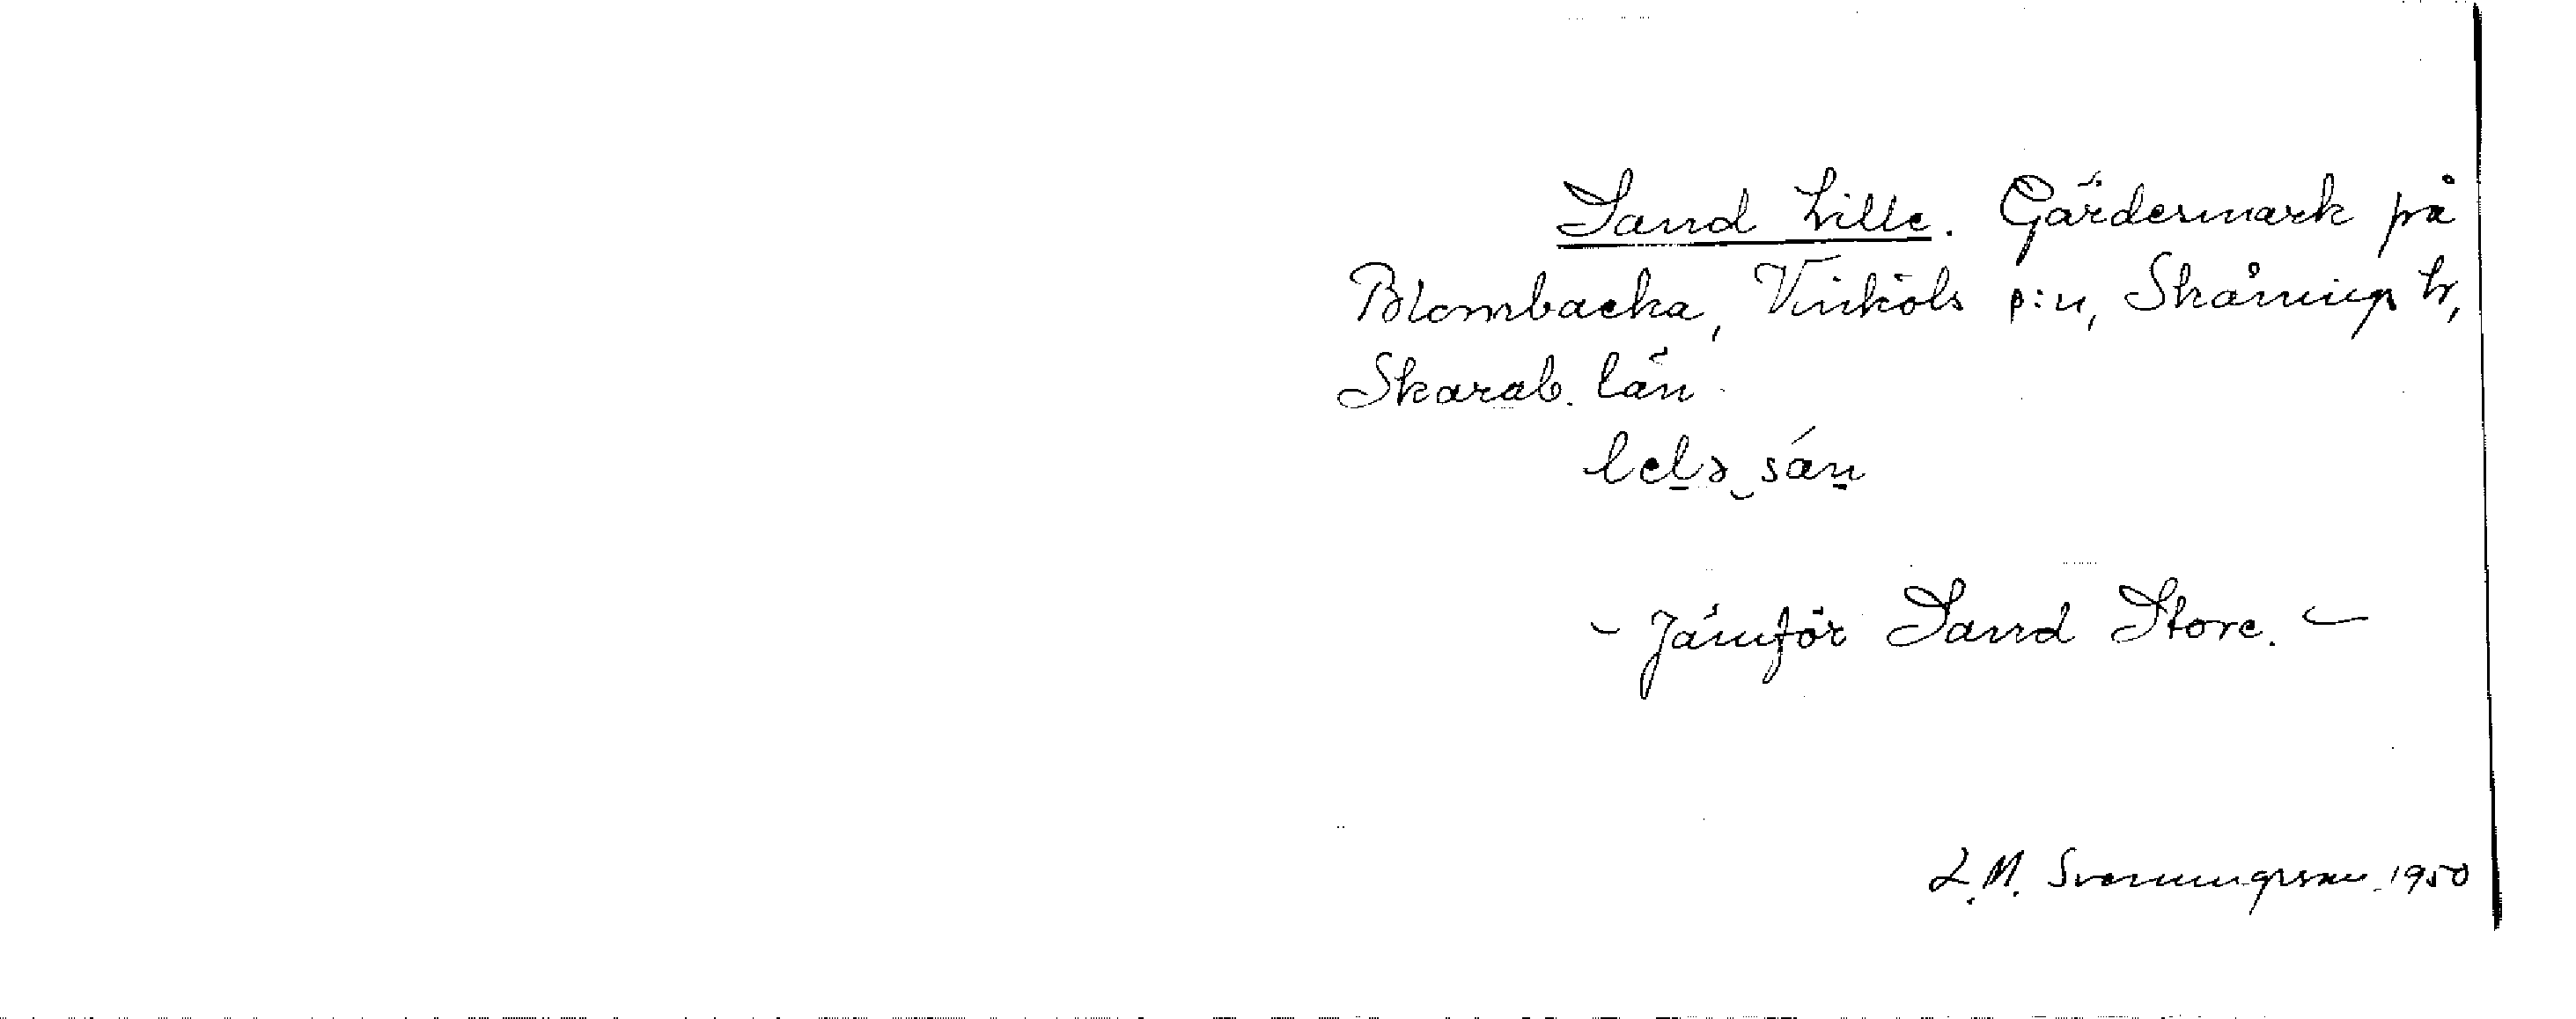 Sand Lille. Gärdesmark på
Blombacka, Vinköls s:n, Skånings hr,
Skarab. län
lel̠ə‿sán̠
- Jämför Sand Store. -
L.M. Svenungsson 1950